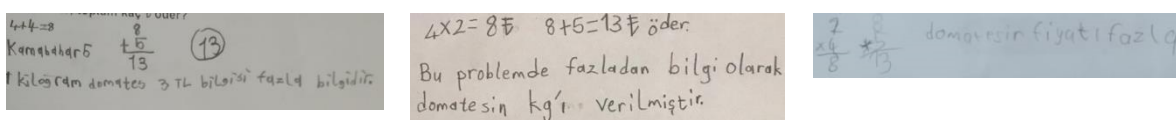 4+4=8
Karnabahar 5
8
+5
13
13
1 kilogram domates 3 TL bilgisi fazla bilgidir.
4x2=8₺ 8+5=13₺ öder.
Bu problemde fazladan bilgi olarak
domatesin kg'ı verilmiştir.
2
x4
8
8
+5
13
domatesin fiyatı fazla